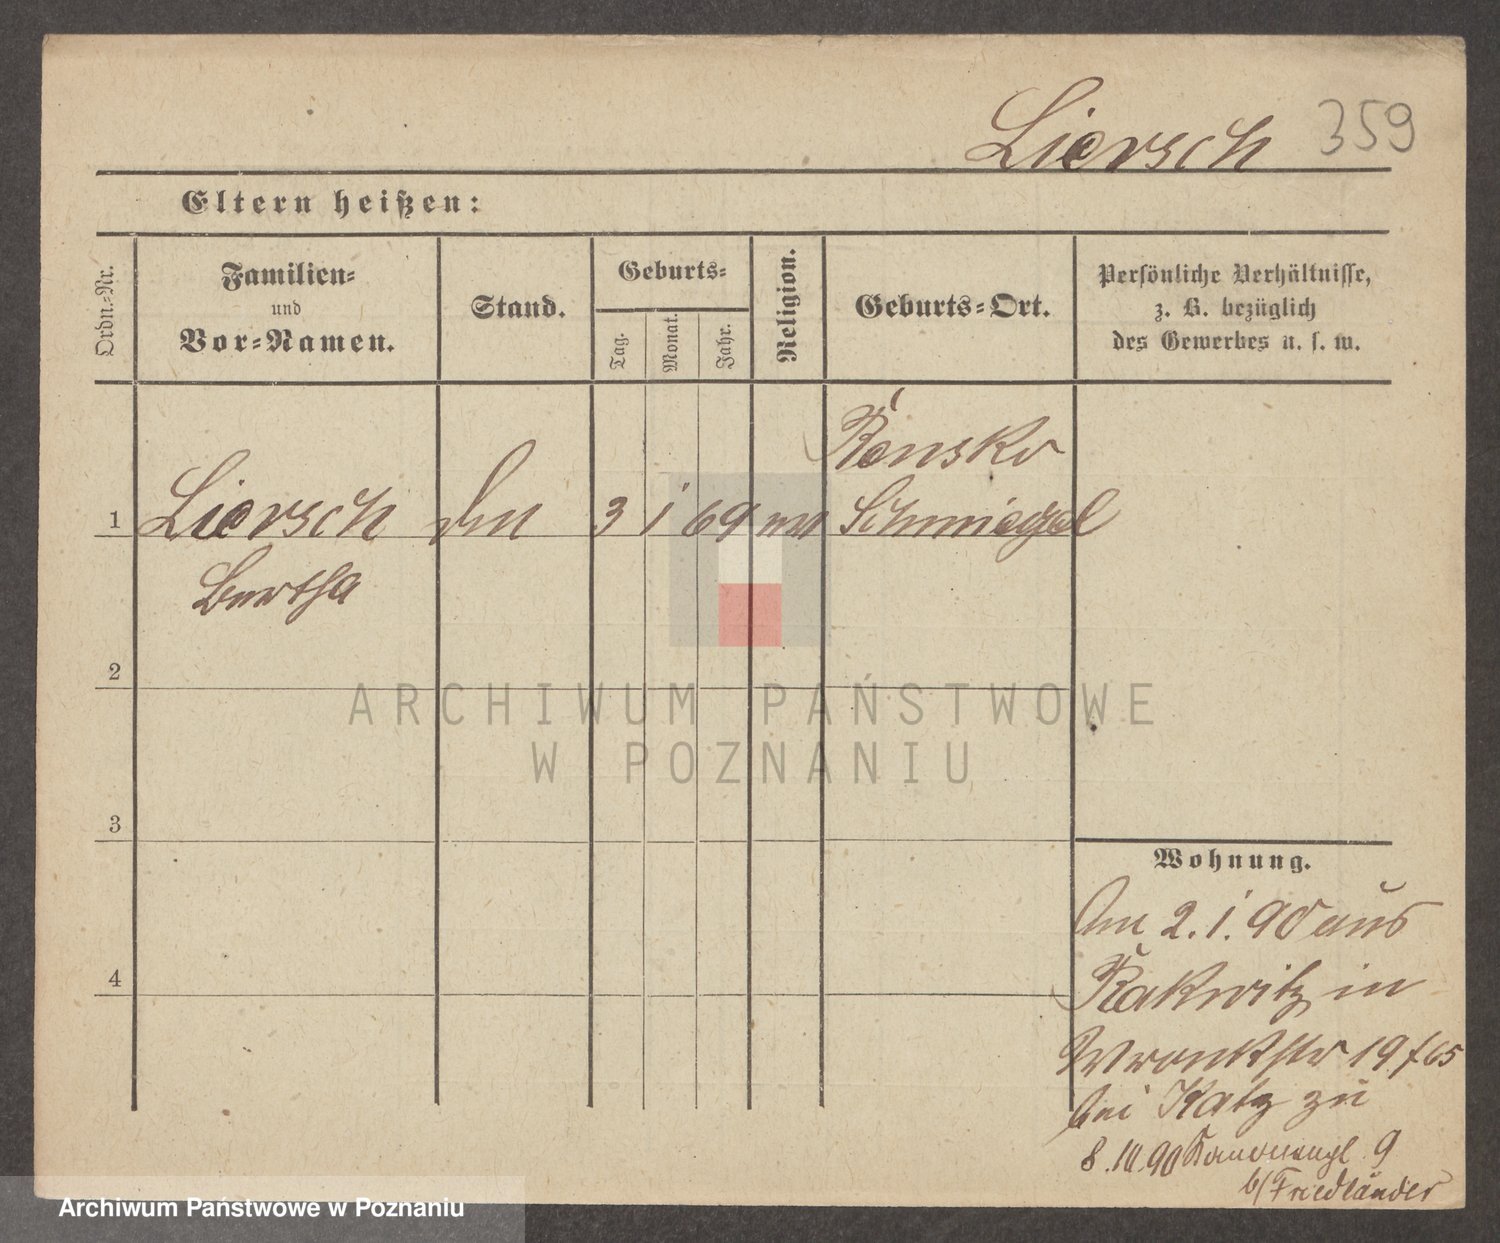 Liersch 359
Eltern heißen:
Ordn.-Nr.
Familien-
und
Vor-Namen.
Stand.
Geburts-
Tag.
Monat.
Jahr.
Religion.
Geburts-Ort.
Persönliche Verhältnisse,
z. B. bezüglich
des Gewerbes u. s. w.
Ronsko
1 Liersch 3 1 69 Schmiegel
Bertha
2
3
4
ARCHIWUM PAŃSTWOWE
W POZNANIU
Wohnung.
Am 2. 1. 90 aus
Rakwitz in
Wronkstr 19
bei Katz zu
8. 10. 90 Kanonengl 9
b/ Friedländer
Archiwum Państwowe w Poznaniu